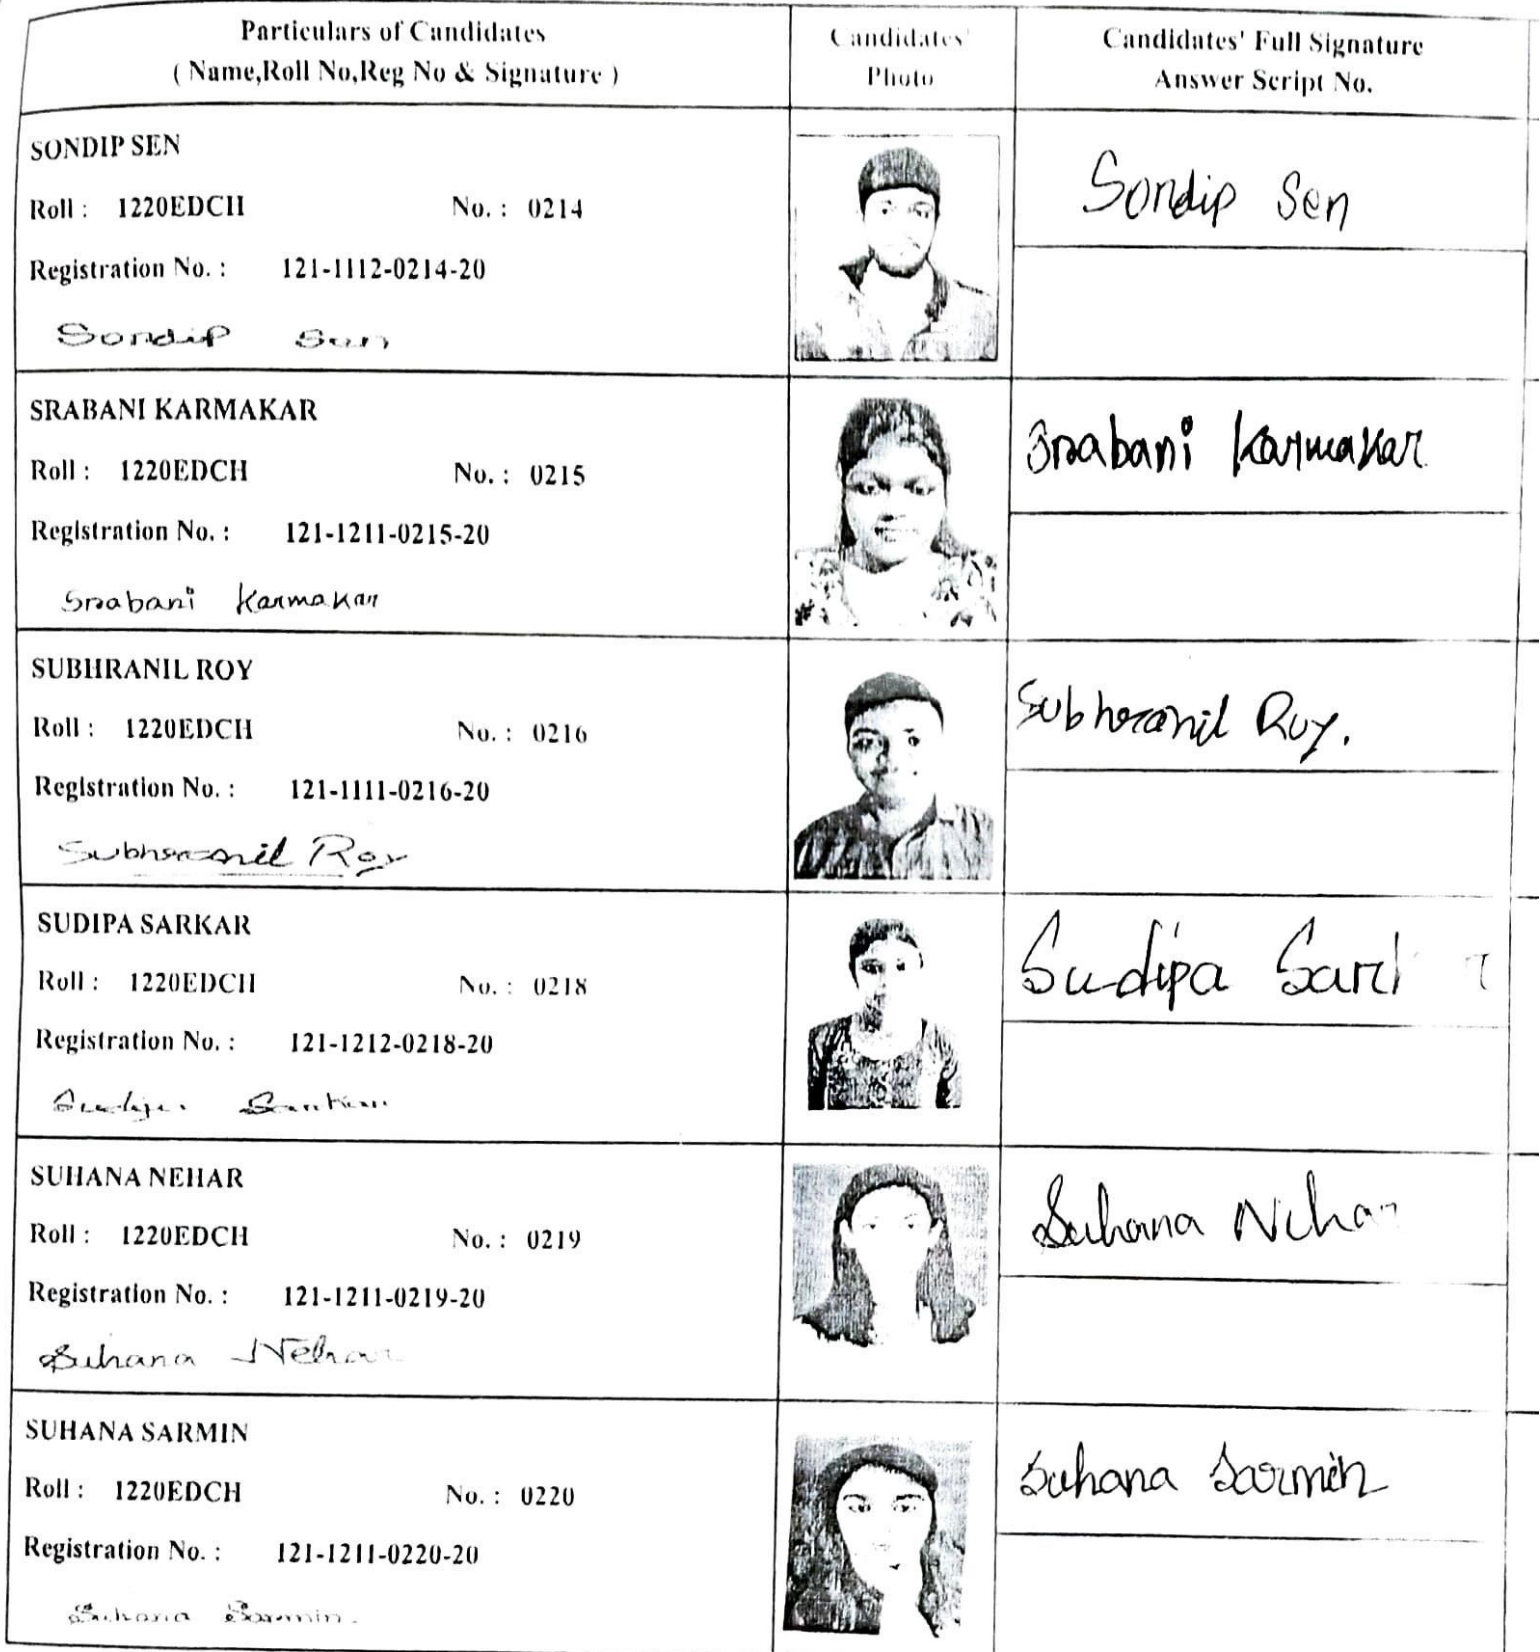 Particulars of Candidates
( Name,Roll No,Reg No & Signature )
Candidates'
Photo
Candidates' Full Signature
Answer Script No.
SONDIP SEN
Roll : 1220EDCH No. : 0214
Registration No. : 121-1112-0214-20
Sondip Sen
Sondip Sen
SRABANI KARMAKAR
Roll : 1220EDCH No. : 0215
Registration No. : 121-1211-0215-20
Srabani Karmakar
Srabani Karmakar
SUBHRANIL ROY
Roll : 1220EDCH No. : 0216
Registration No. : 121-1111-0216-20
Subhranil Roy
Subhranil Roy.
SUDIPA SARKAR
Roll : 1220EDCH No. : 0218
Registration No. : 121-1212-0218-20
Sudipa Sarkar
Sudipa
SUHANA NEHAR
Roll : 1220EDCH No. : 0219
Registration No. : 121-1211-0219-20
Suhana Nehar
Suhana Nehar
SUHANA SARMIN
Roll : 1220EDCH No. : 0220
Registration No. : 121-1211-0220-20
Suhana Sarmin
Suhana Sarmin